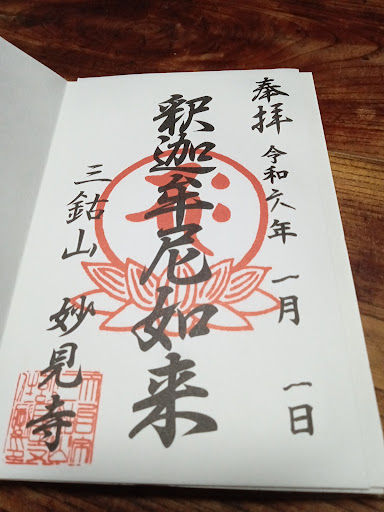 奉拝 令和六年 一月 一日
釈迦牟尼如来
三鈷山 妙見寺